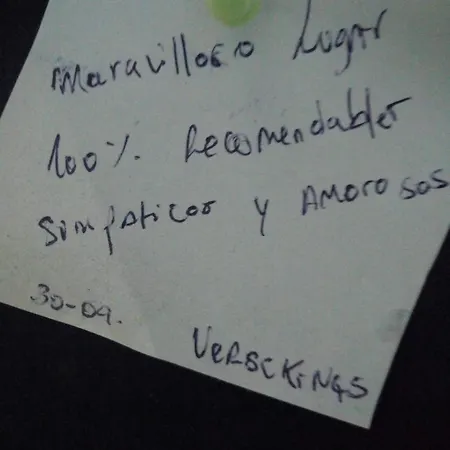 Maravilloso Lugar
100% Recomendables
Simpaticos y Amorosos
30-09.
VERSCKINGS